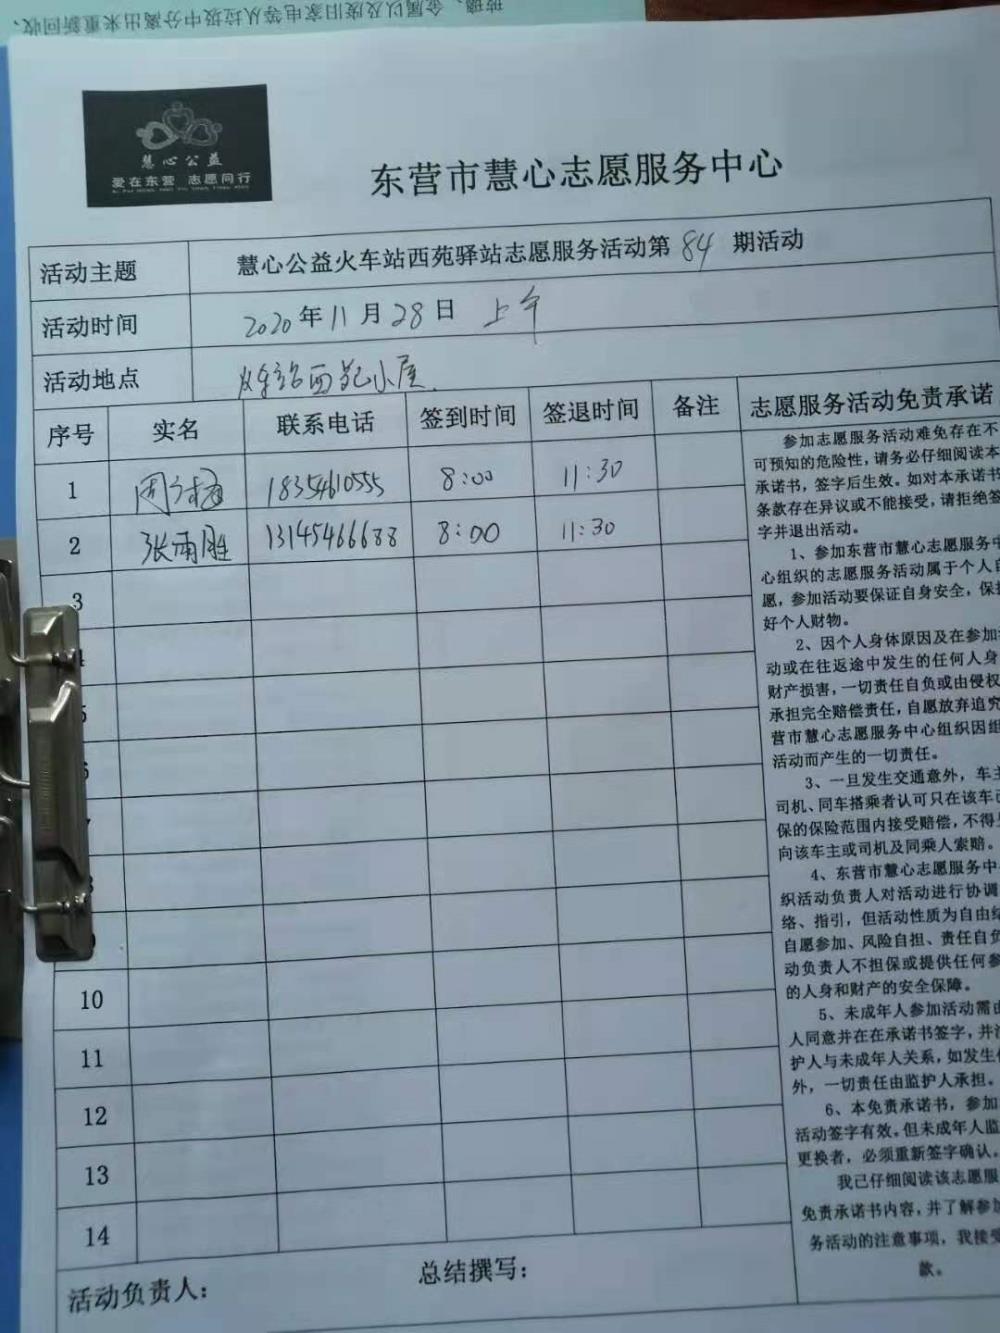 玻璃、金属以及废旧家电等从垃圾中分离出来重新回收、
慧心公益
爱在东营 志愿同行
东营市慧心志愿服务中心
活动主题 慧心公益火车站西苑驿站志愿服务活动第84期活动
活动时间 2020年11月28日 上午
活动地点 火车站西苑小屋
序号 实名 联系电话 签到时间 签退时间 备注
1 18354610555 8:00 11:30
2 张雨胜 13145466688 8:00 11:30
3
10
11
12
13
14
活动负责人: 总结撰写:
志愿服务活动免责承诺
参加志愿服务活动难免存在不
可预知的危险性,请务必仔细阅读本
承诺书,签字后生效。如对本承诺书
条款存在异议或不能接受,请拒绝签
字并退出活动。
1、参加东营市慧心志愿服务中
心组织的志愿服务活动属于个人自
愿,参加活动要保证自身安全,保护
好个人财物。
2、因个人身体原因及在参加
动或在往返途中发生的任何人身
财产损害,一切责任自负或由侵权
承担完全赔偿责任,自愿放弃追究
营市慧心志愿服务中心组织因组
活动而产生的一切责任。
3、一旦发生交通意外,车主
司机、同车搭乘者认可只在该车
保的保险范围内接受赔偿,不得
向该车主或司机及同乘人索赔。
4、东营市慧心志愿服务中
织活动负责人对活动进行协调
络、指引,但活动性质为自由
自愿参加、风险自担、责任自负
动负责人不担保或提供任何参
的人身和财产的安全保障。
5、未成年人参加活动需由
人同意并在在承诺书签字,并
护人与未成年人关系,如发生
外,一切责任由监护人承担。
6、本免责承诺书,参加
活动签字有效。但未成年人监
更换者,必须重新签字确认。
我已仔细阅读该志愿服
免责承诺书内容,并了解参加
务活动的注意事项,我接受
款。